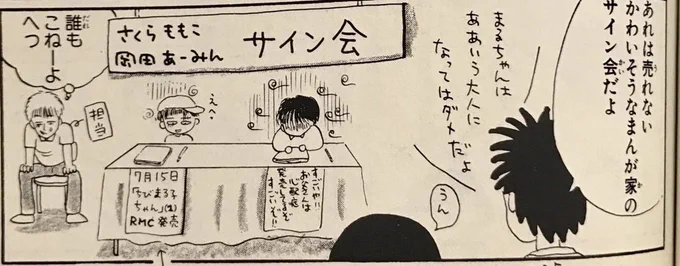 あれは売れない
かわいそうなまんが家の
サイン会だよ
まるちゃんは
ああいう大人に
なってはダメだよ
うん
さくらももこ
岡田あーみん
サイン会
えへ
すごいや!!
お父さんは
心配症
発売してるぞ
すごいぞ!!
7月15日
「ちびまる子
ちゃん」(1)
RMC発売
担当
誰も
こねーよ
へっ